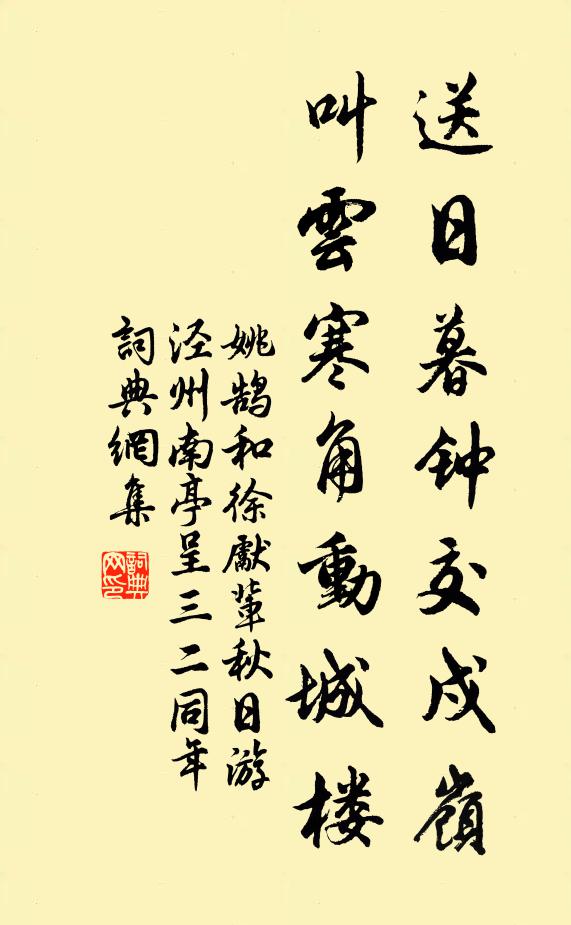 送日暮钟交戍嶺
叫雲寒角動城楼
姚鹄和徐獻輩秋日游
泾州南亭呈三二同年
詞典網集
詞典
网印